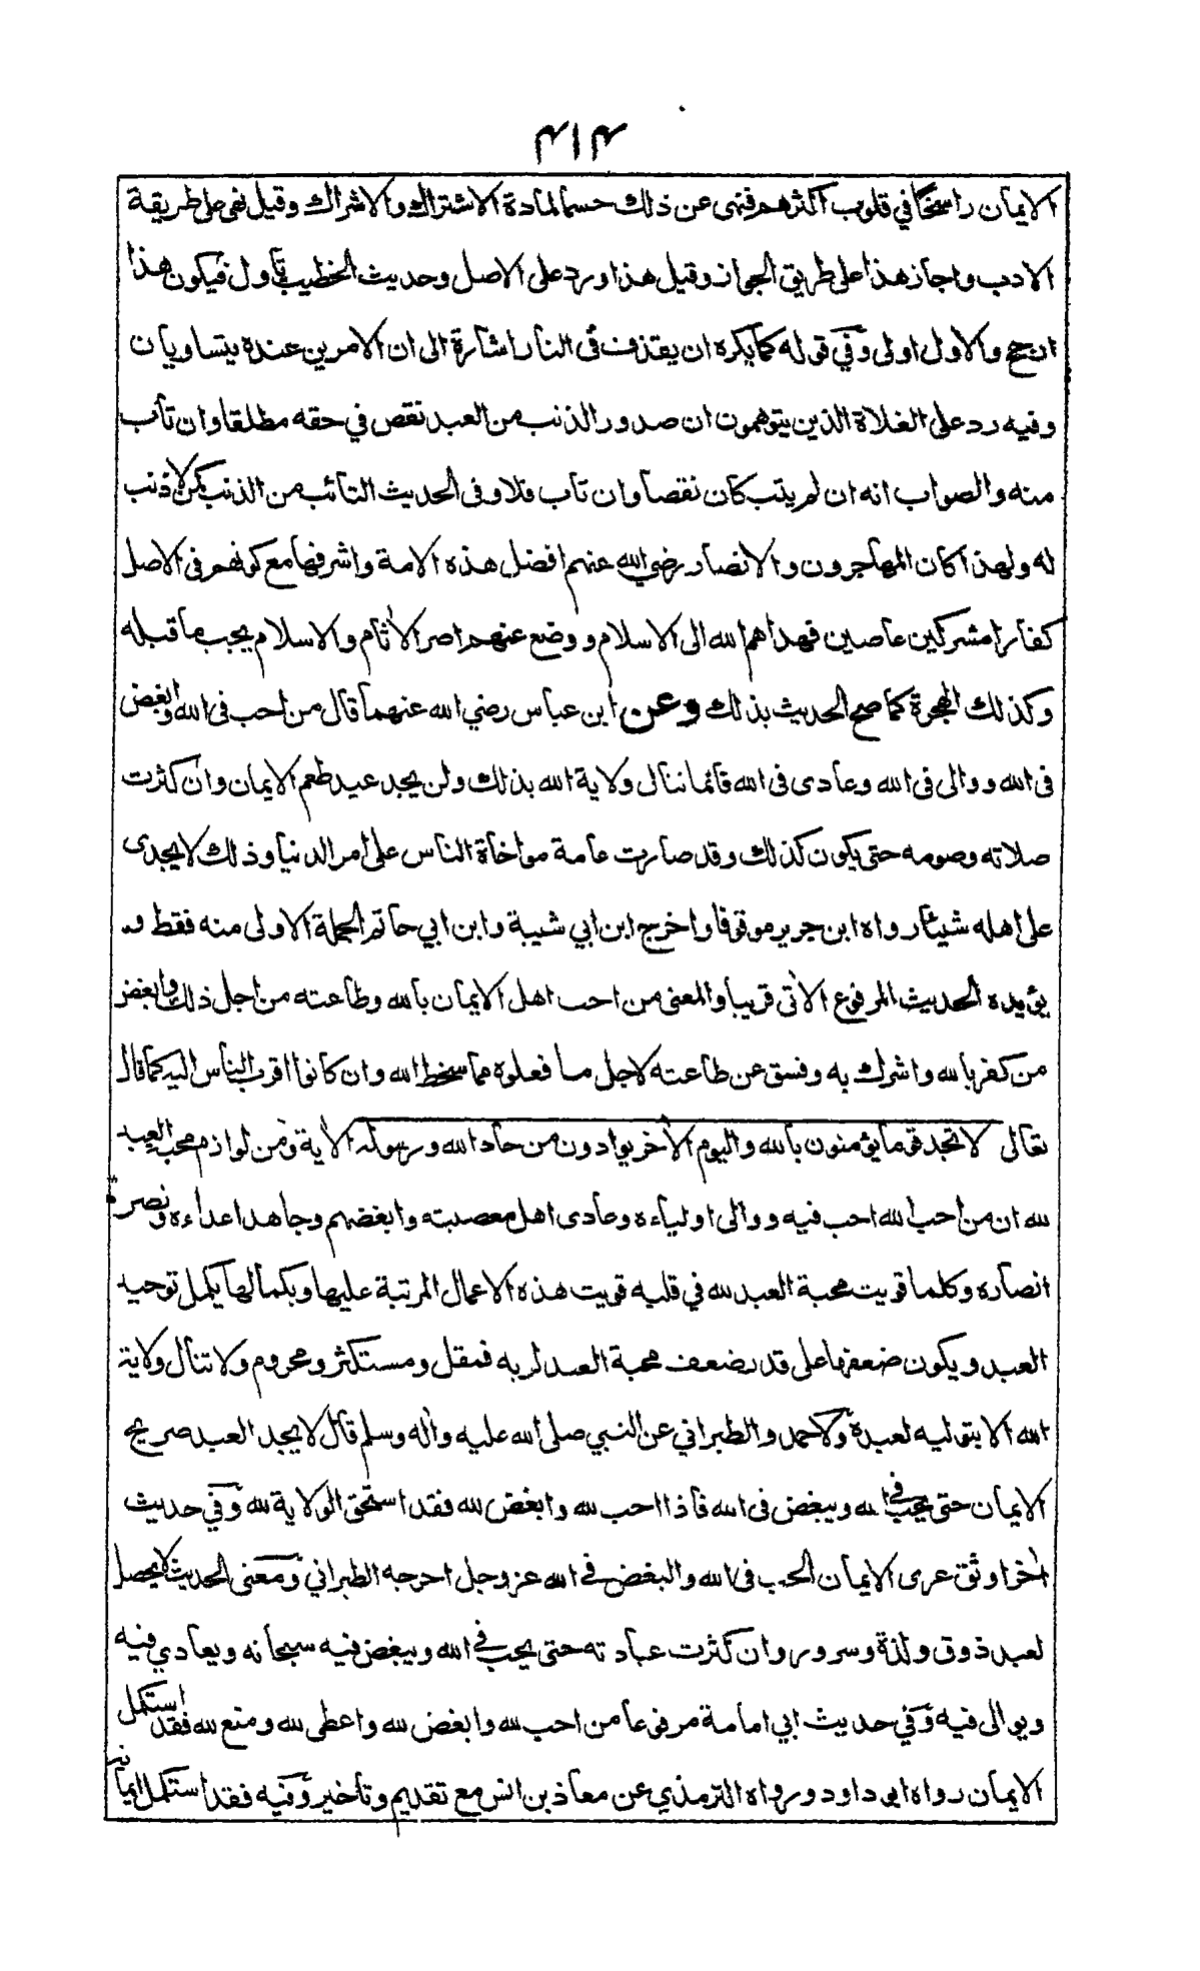 ٤١٤
الايمان راسخا في قلوب اكثرهم فنهى عن ذلك حسما لمادة الاشتراك والاشراك وقيل نهى على طريقة
الادب واجاز هذا على طريق الجواز وقيل هذا ورد على الاصل وحديث الخطيب تأول فيكون هذا
ارجح والاول اولى وفي قوله كما يكره ان يقذف في النار اشارة الى ان الامرين عنده يتساويان
وفيه رد على الغلاة الذين يتوهمون ان صدور الذنب من العبد نقص في حقه مطلقا وان تاب
منه والصواب انه ان لم يتب كان نقصا وان تاب فلا وفى الحديث التائب من الذنب كمن لا ذنب
له ولهذا كان المهاجرون والانصار رضي الله عنهم افضل هذه الامة واشرفها مع كونهم فى الاصل
كفارا مشركين عاصين فهداهم الله الى الاسلام ووضع عنهم اصر الاثام والاسلام يجب ما قبله
وكذلك الهجرة كما صح الحديث بذلك وعن ابن عباس رضي الله عنهما قال من احب فى الله وابغض
فى الله ووالى فى الله وعادى فى الله فانما ننال ولاية الله بذلك ولن يجد عبد طعم الايمان وان كثرت
صلاته وصومه حتى يكون كذلك وقد صارت عامة مواخاة الناس على امر الدنيا وذلك لا يجدى
على اهله شيئا رواه ابن جرير موقوفا واخرج ابن ابي شيبة وابن ابي حاتم الجملة الاولى منه فقط و
يؤيده الحديث المرفوع الاتى قريبا والمعنى من احب اهل الايمان بالله وطاعته من اجل ذلك وابغض
من كفر بالله واشرك به وفسق عن طاعته لاجل ما فعلوه مما سخط الله وان كانوا اقرب الناس اليه كما قال
تعالى لا تجد قوما يؤمنون بالله واليوم الاخر يوادون من حاد الله ورسوله الاية ومن لوازم محب العبد
لله ان من احب الله احب فيه ووالى اولياءه وعادى اهل معصيته وابغضهم وجاهد اعداءه ونصرة
انصاره وكلما قويت محبة العبد لله في قلبه قويت هذه الاعمال المرتبة عليها وبكمالها يكمل توحيد
العبد ويكون ضعفها على قدر ضعف محبة العبد لربه فمقل ومستكثر ومحروم ولا تنال ولاية
الله الا بتوليه لعبده ولاحمد والطبراني عن النبي صلى الله عليه واله وسلم قال لا يجد العبد صريح
الايمان حتى يحب في الله ويبغض فى الله فاذا احب لله وابغض لله فقد استحق الولاية لله وفي حديث
اخر اوثق عرى الايمان الحب فى الله والبغض في الله عز وجل اخرجه الطبراني ومعنى الحديث لا يحصل
لعبد ذوق ولذة وسرور وان كثرت عبادته حتى يحب في الله ويبغض فيه سبحانه ويعادي فيه
ويوالى فيه وفي حديث ابي امامة مرفوعا من احب لله وابغض لله واعطى لله ومنع لله فقد استكمل
الايمان رواه ابى داود ورواه الترمذي عن معاذ بن انس مع تقديم وتاخير وفيه فقد استكمل ايمانه